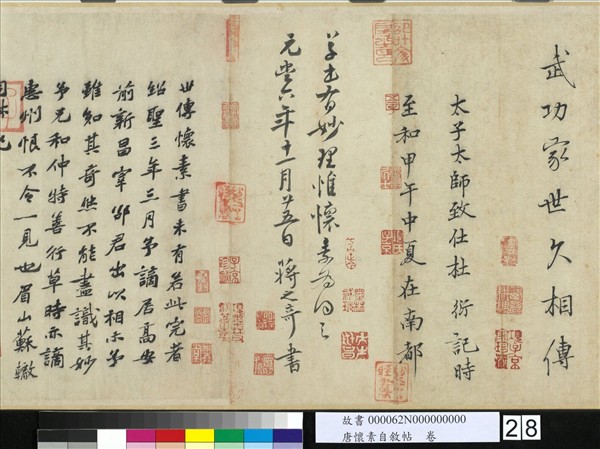 武功家世久相傳
太子太師致仕杜衍記時
至和甲午中夏在南都
草書有妙理惟懷素為得之
元豐六年十一月廿五日蔣之奇書
世傳懷素書未有若此完者
紹聖三年三月予謫居高安
前新昌宰邵君出以相示予
雖知其奇然不能盡識其妙
予兄和仲特善行草時亦謫
惠州恨不令一見也眉山蘇轍
同叔記
故書 000062N000000000
唐懷素自敘帖 卷
28